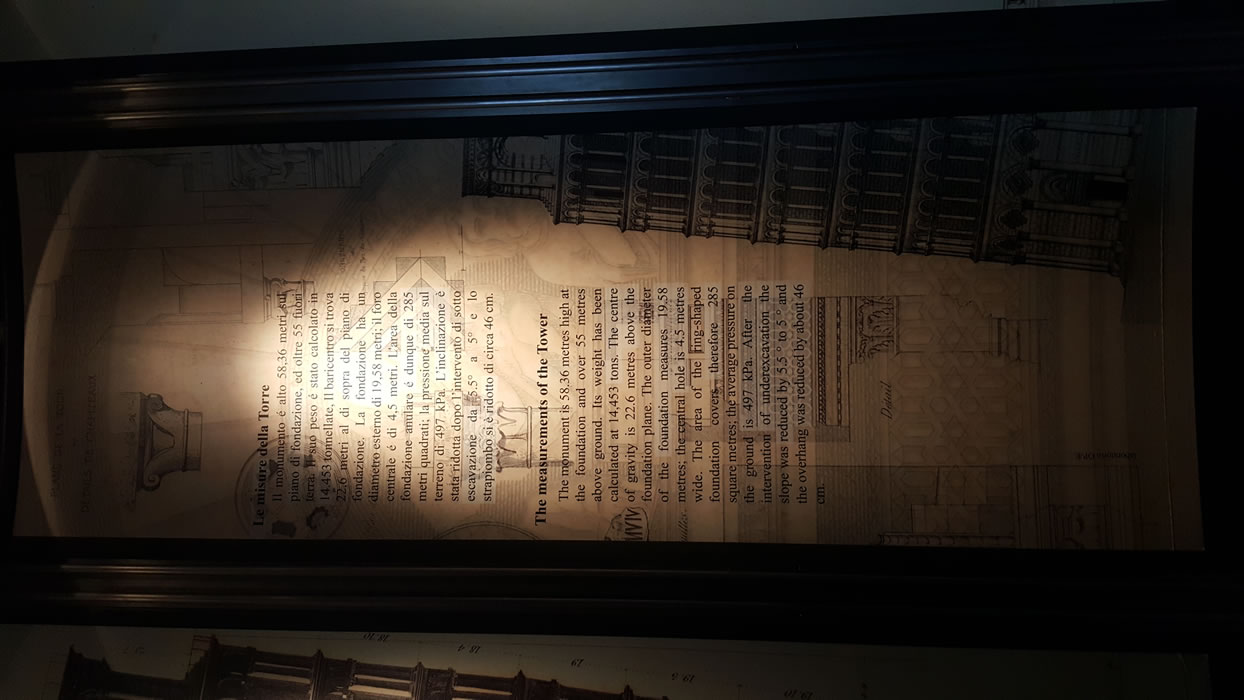 Le misure della Torre
Il monumento é alto 58,36 metri sul
piano di fondazione, ed oltre 55 fuori
terra. Il suo peso é stato calcolato in
14.453 tonnellate, Il baricentro si trova
22,6 metri al di sopra del piano di
fondazione. La fondazione ha un
diametro esterno di 19,58 metri; il foro
centrale é di 4,5 metri. L'area della
fondazione anulare é dunque di 285
metri quadrati; la pressione media sul
terreno di 497 kPa. L'inclinazione è
stata ridotta dopo l'intervento di sotto
escavazione da 5.5° a 5° e lo
strapiombo si è ridotto di circa 46 cm.
The measurements of the Tower
The monument is 58,36 metres high at
the foundation and over 55 metres
above ground. Its weight has been
calculated at 14.453 tons. The centre
of gravity is 22.6 metres above the
foundation plane. The outer diameter
of the foundation measures 19,58
metres; the central hole is 4.5 metres
wide. The area of the ring-shaped
foundation covers therefore 285
square metres; the average pressure on
the ground is 497 kPa. After the
intervention of underexcavation the
slope was reduced by 5.5° to 5° and
the overhang was reduced by about 46
cm.
MVIV
Detail
18.10
18 4
19
19. 6
19. 10